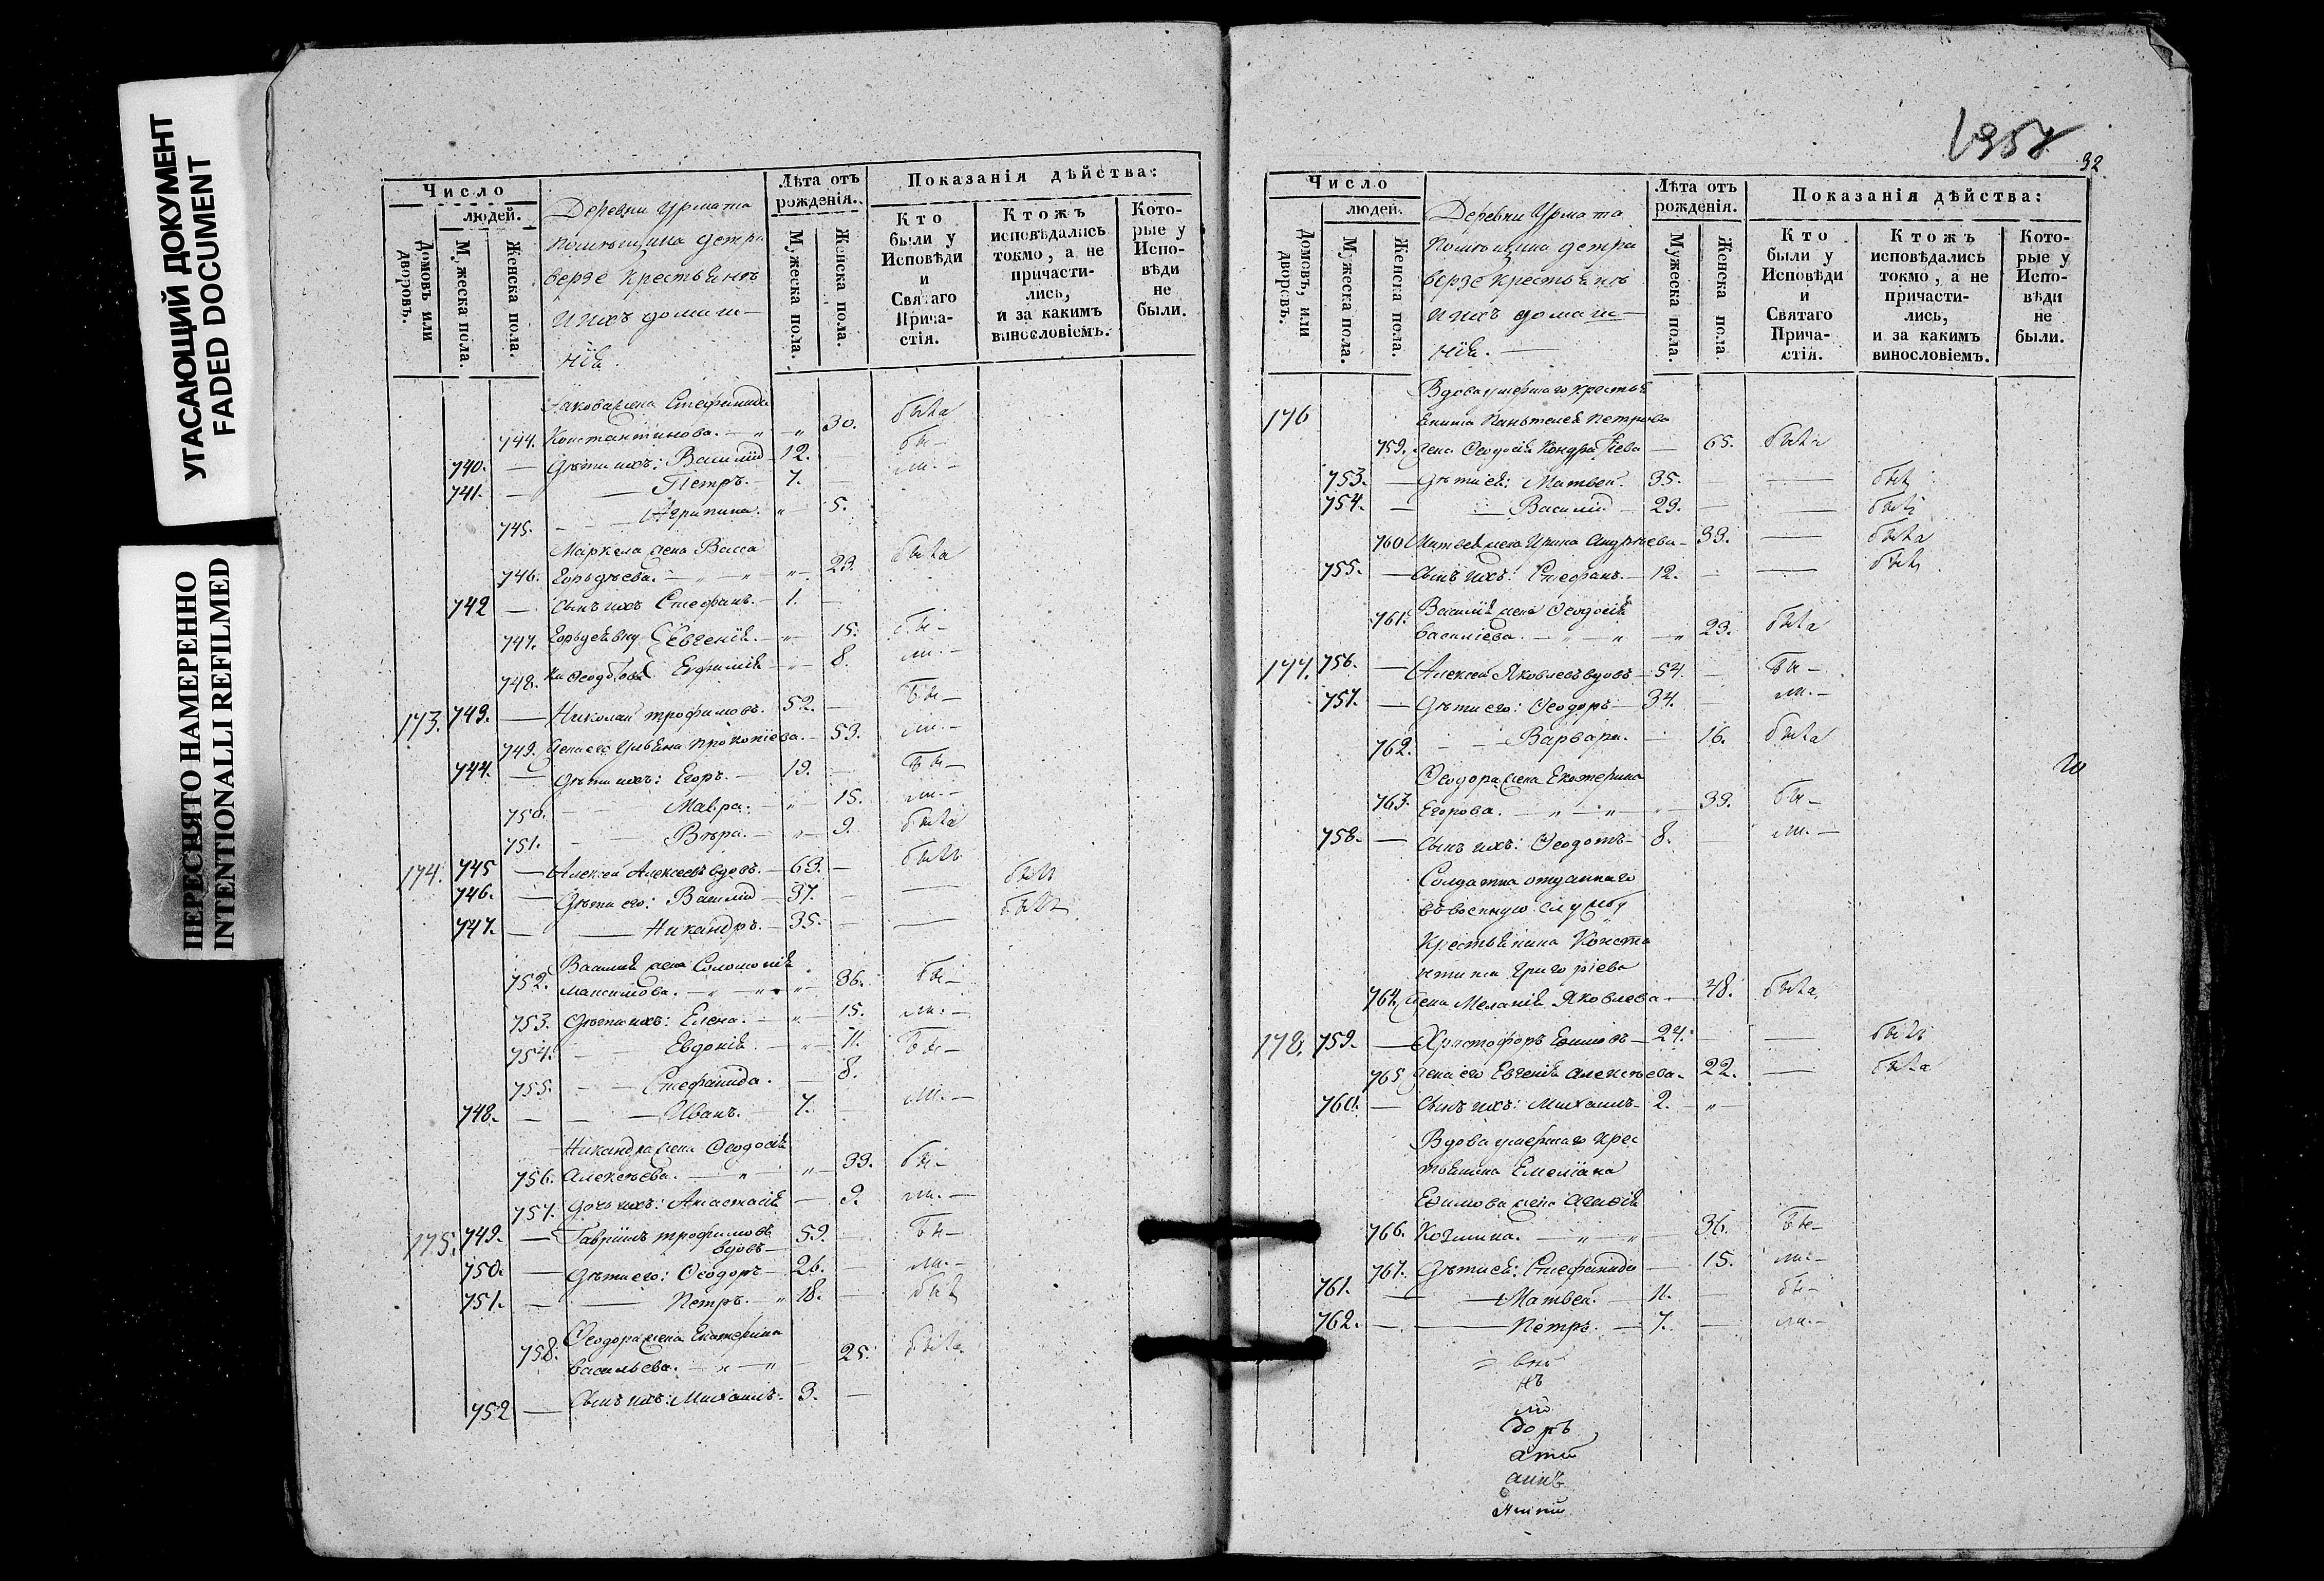 УГАСАЮЩИЙ ДОКУМЕНТ
FADED DOCUMENT
ПЕРЕСНЯТО НАМЕРЕННО
INTENTIONALLI REFILMED
Число
людей.
Домовъ или дворовъ.
Мужеска пола.
Женска пола.
Деревни Урмата
помѣщика Детра
верзе крестьяне
и ихъ домаш-
нія.
Лѣта отъ рожденія.
Мужеска пола.
Женска пола.
Показанія дѣйства:
Кто были у Исповѣди и Святаго Прича-стія.
Ктожъ исповѣдались токмо, а не причасти-лись, и за какимъ винословіемъ.
Кото-рые у Испо-вѣди не были.
Іакова жена Стефанида
744. Константинова. 30. была
740. Дѣти ихъ: Василій 12. бы-
741. Петръ. 7. ли.-
745. Агрипина. 5.
Маркела жена Васса
746. 23. была
742 Сынъ ихъ Стефанъ. 1.
747. Евгенія. 15. бы-
748. Евфимія 8. ли.-
173. 743. Николай Трофимовъ. 52. бы-
749. Жена его Ульяна Прокопіева. 53. ли.-
744. Дѣти ихъ: Егоръ. 19. бы-
750. Мавра. 15. ли.-
751. Вѣра. 9. была
174. 745 Алексей Алексеевъ вдовъ. 63. былъ
746. Дѣти его: Василій 37. былъ
747. Никандръ. 35. былъ
Василія жена Соломонія
752. Максимова. 36. бы-
753. Дѣти ихъ: Елена. 15. ли.-
754. Евдокія 11. бы-
755. Стефанида. 8.
748. Иванъ. 7. ли.-
Никандра жена Ѳеодосія
756. Алексѣева. 33. бы-
757. Дочь ихъ: Анастасія 9. ли.-
175. 749. Гавріилъ Трофимовъ 59. бы-
вдовъ
750. Дѣти его: Ѳеодоръ 26. ли.-
751. Петръ. 18. былъ
Ѳеодора жена Екатерина
758. Васильева. 25. была
752 Сынъ ихъ: Михаилъ. 3.
1957
32
Число
людей.
Домовъ, или дворовъ.
Мужеска пола.
Женска пола.
Деревни Урмата
помѣщика Детра
верзе крестьяне
и ихъ домаш-
нія.
Лѣта отъ рожденія.
Мужеска пола.
Женска пола.
Показанія дѣйства:
Кто были у Исповѣди и Святаго Прича-стія.
Ктожъ исповѣдались токмо, а не причасти-лись, и за какимъ винословіемъ.
Кото-рые у Испо-вѣди не были.
Вдова умершаго крестья
176 янина Пантелея Петрова
759. жена Ѳеодосія Кондратіева 65. была
753. Дѣти ея: Матвей. 35. былъ
754. Василій 29. былъ
760. Матвея жена Ирина Андрѣева 33. была
755. Сынъ ихъ: Стефанъ. 12. былъ
Василія жена Ѳеодосія
761. Василіева. 23. была
177. 756. Алексей Яковлевъ вдовъ 54. бы-
757. Дѣти его: Ѳеодоръ 34. ли.-
762. Варвара. 16. была
Ѳеодора жена Екатерина
763. Егорова. 33. бы-
758. Сынъ ихъ: Ѳеодотъ 8. ли.-
Солдатка отданнаго
въ военную службу
Крестьянина Конста
нтина Григоріева
764. жена Меланія Яковлева 48. была
178. 759. Христофоръ 24. былъ
765. Жена его Евгенія Алексѣева. 22. была
760. Сынъ ихъ: Михаилъ 2.
Вдова умершаго крес
тьянина Емеліана
жена
766. Козмина. 36. бы-
767. Дѣти ея: Стефанида 15. ли.-
761. Матвей. 11. бы-
762. Петръ. 7. ли.-
доръ